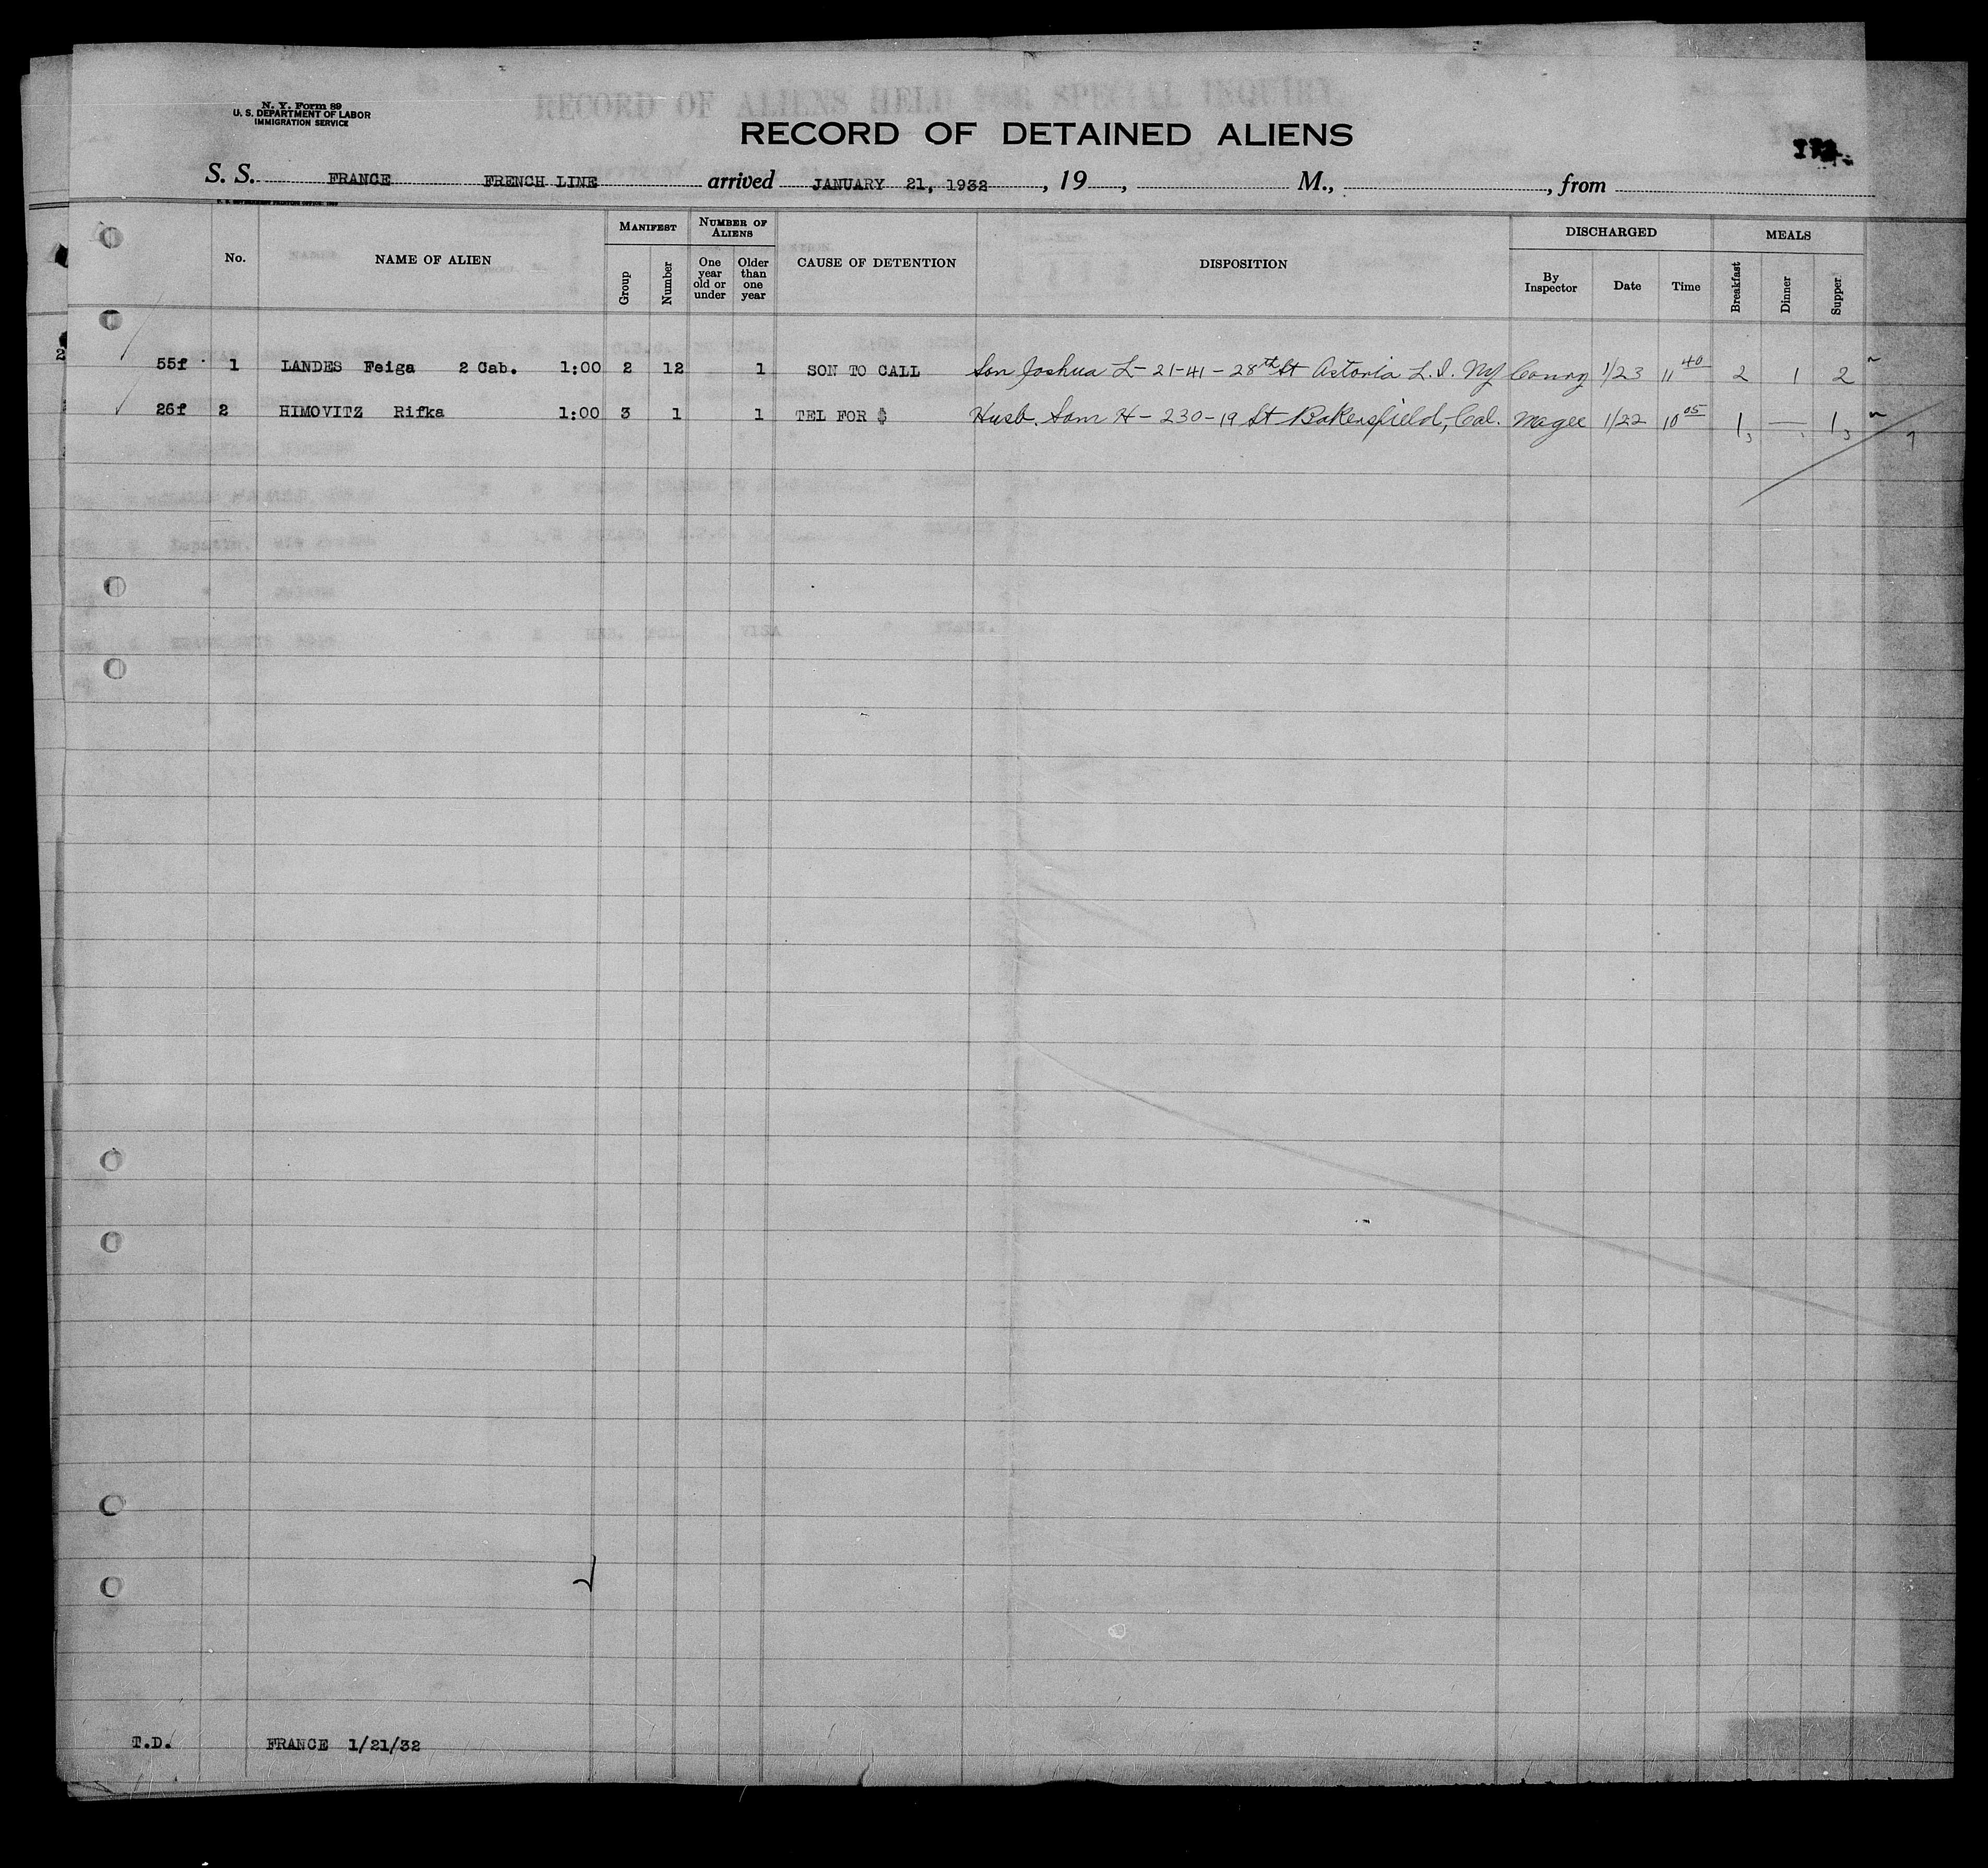 N. Y. Form 89
U. S. DEPARTMENT OF LABOR
IMMIGRATION SERVICE
RECORD OF ALIENS HELD FOR SPECIAL INQUIRY
RECORD OF DETAINED ALIENS
S. S. FRANCE FRENCH LINE arrived JANUARY 21, 1932, 19, M., , from
No. NAME OF ALIEN MANIFEST Group Number NUMBER OF ALIENS One year old or under Older than one year CAUSE OF DETENTION DISPOSITION DISCHARGED By Inspector Date Time MEALS Breakfast Dinner Supper
55f 1 LANDES Feiga 2 Cab. 1:00 2 12 1 SON TO CALL Son Joshua L- 21-41-28th St Astoria L.I. NY 1/23 11 40 2 1 2
26f 2 HIMOVITZ Rifka 1:00 3 1 1 TEL FOR $ Husb. Sam H- 230-19 St Bakersfield, Cal. Magee 1/22 10 05 1, —, 1,
T.D. FRANCE 1/21/32